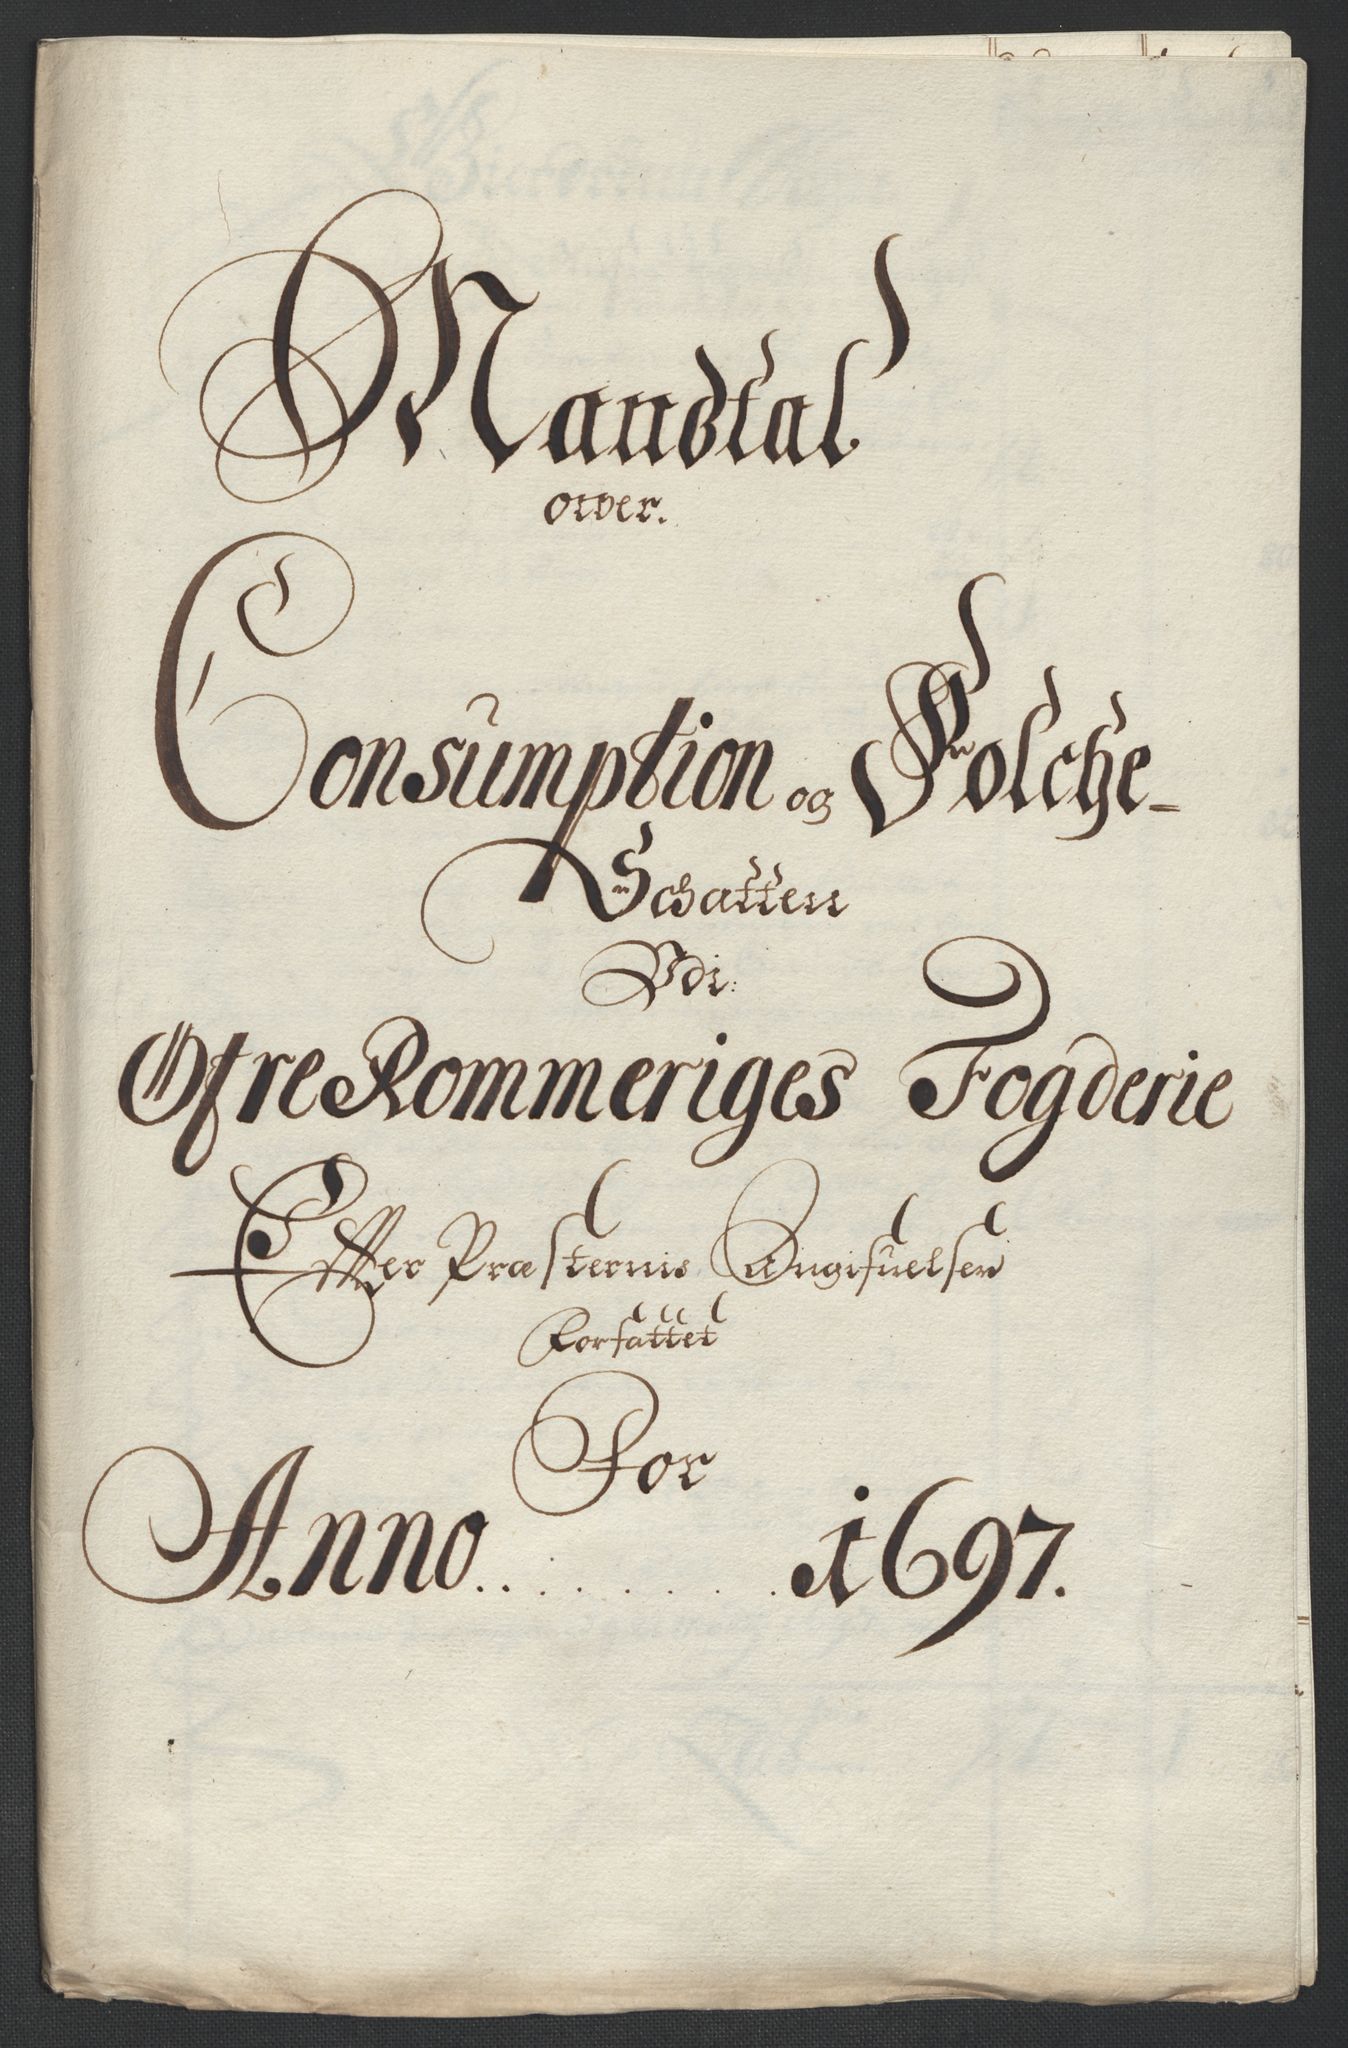 Mandtal
over.
Consumption og Folche-
Schatten
Udi:
Øfre Rommeriges Fogderie
Effter Præsternis Angifuelser
Forfattet
For
Anno......... 1697.